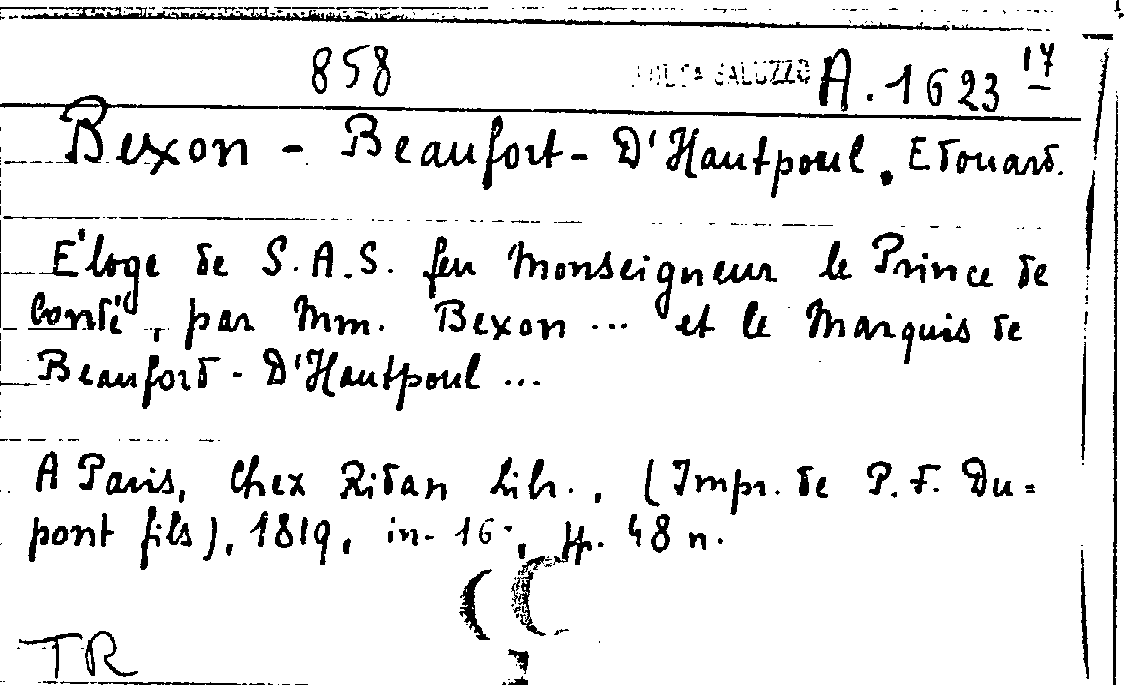 858 SALUZZO A. 1623 17
Bexon - Beaufort - D'Hautpoul, Edouard.
Éloge de S.A.S. feu Monseigneur le Prince de
Condé, par Mm. Bexon ... et le Marquis de
Beaufort - D'Hautpoul ...
A Paris, Chez Ridan Libr., (Impr. de P. F. Du=
pont fils), 1819, in- 16°, pp. 48 n.
TR